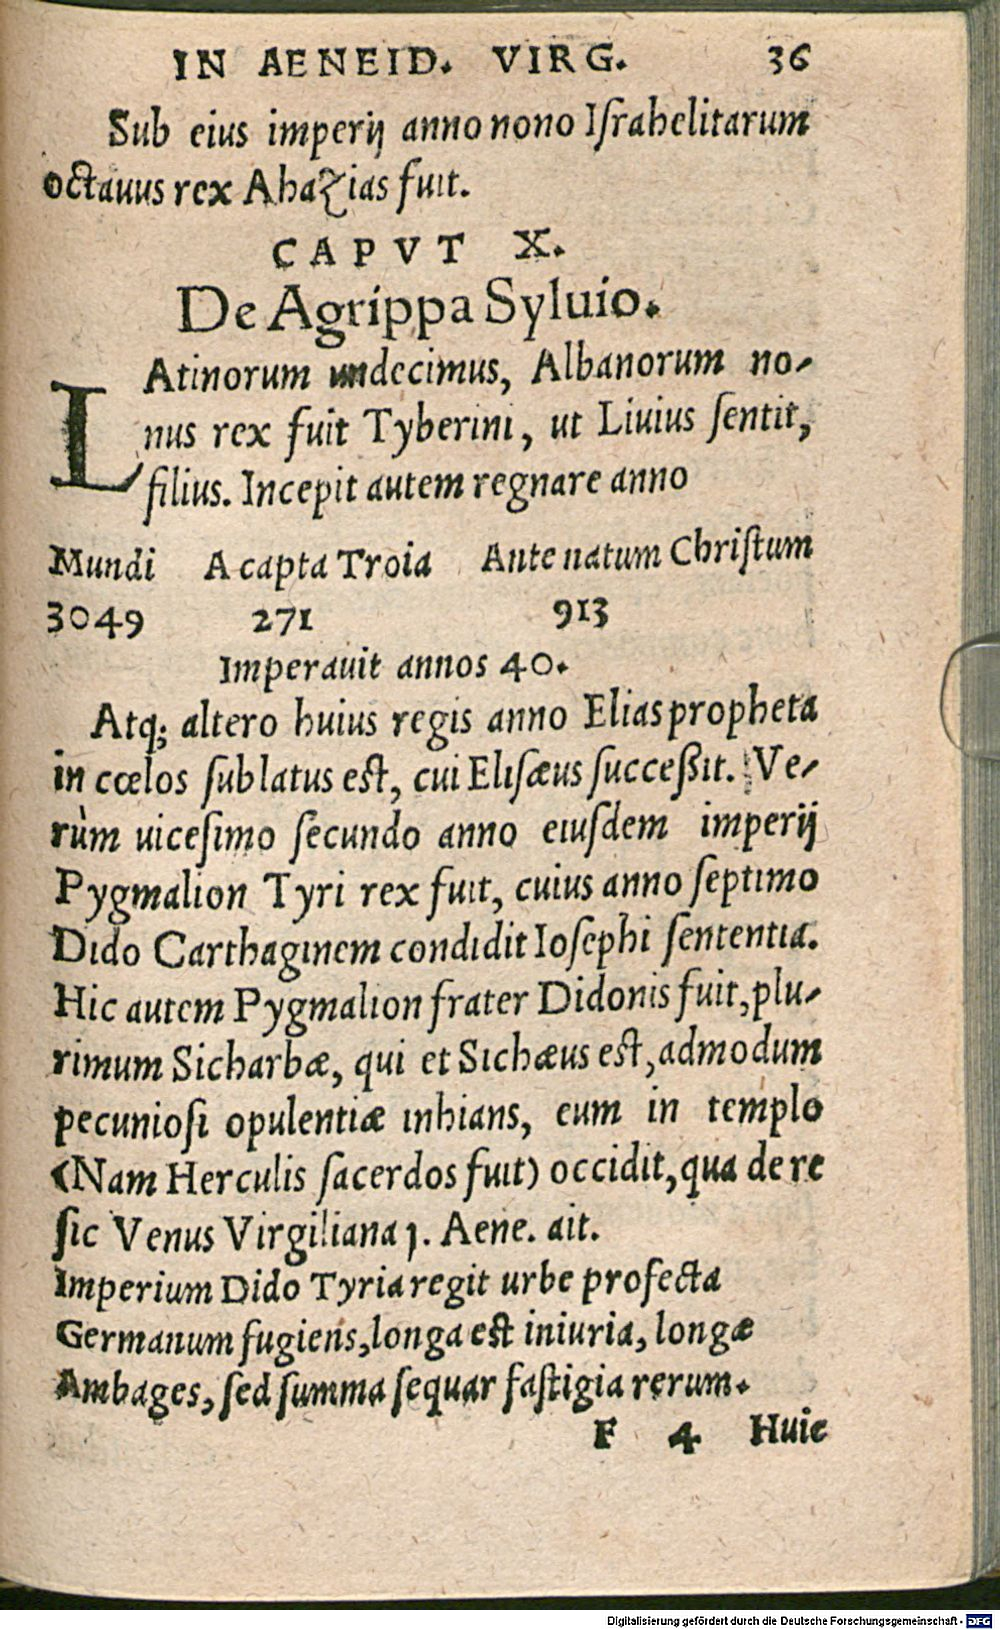 IN AENEID. VIRG. 36
Sub eius imperij anno nono Iſrahelitarum
octauus rex Ahazias fuit.
CAPVT X.
De Agrippa Syluio.
LAtinorum undecimus, Albanorum no-
nus rex fuit Tyberini, ut Liuius ſentit,
filius. Incepit autem regnare anno
Mundi A capta Troia Ante natum Chriſtum
3049 271 913
Imperauit annos 40.
Atq; altero huius regis anno Elias propheta
in cœlos ſublatus eſt, cui Eliſæus ſucceßit. Ve-
rùm uiceſimo ſecundo anno eiuſdem imperij
Pygmalion Tyri rex fuit, cuius anno ſeptimo
Dido Carthaginem condidit Ioſephi ſententia.
Hic autem Pygmalion frater Didonis fuit, plu-
rimum Sicharbæ, qui et Sichæus eſt, admodum
pecunioſi opulentiæ inhians, eum in templo
(Nam Herculis ſacerdos fuit) occidit, qua de re
ſic Venus Virgiliana 1. Aene. ait.
Imperium Dido Tyria regit urbe profecta
Germanum fugiens, longa eſt iniuria, longæ
Ambages, ſed ſumma ſequar faſtigia rerum.
F 4 Huic
Digitalisierung gefördert durch die Deutsche Forschungsgemeinschaft - DFG